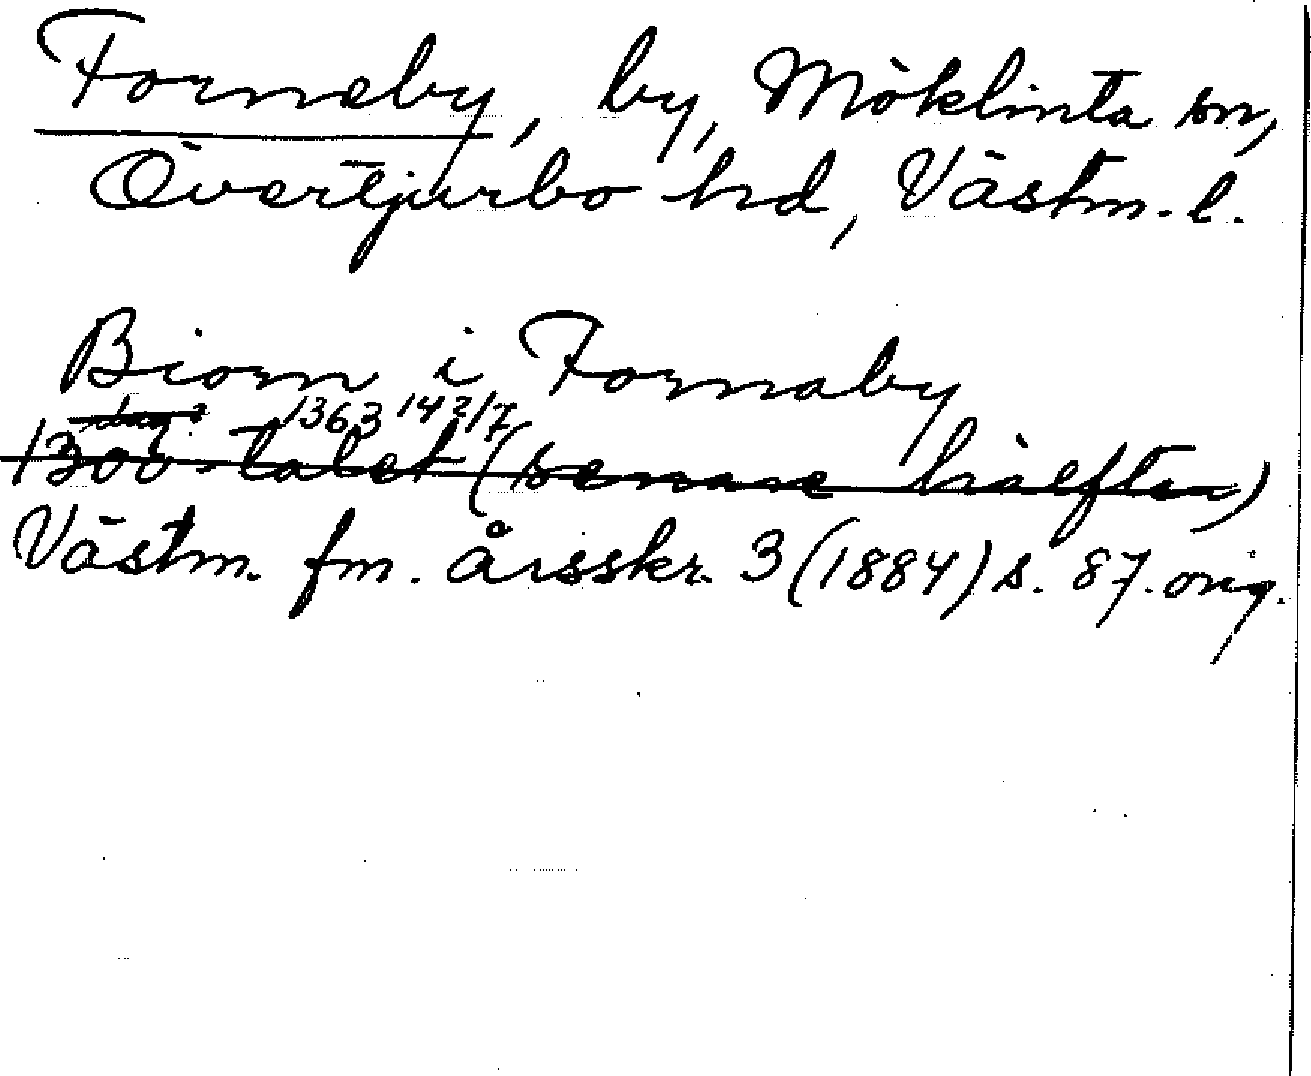 Forneby, by, Möklinta sn,
Övertjurbo hd, Västm. l.
Biorn i Fornaby
1363 14 2/7
1300-talet (senare hälften)
Västm. fm. årsskr. 3 (1884) s. 87. orig.